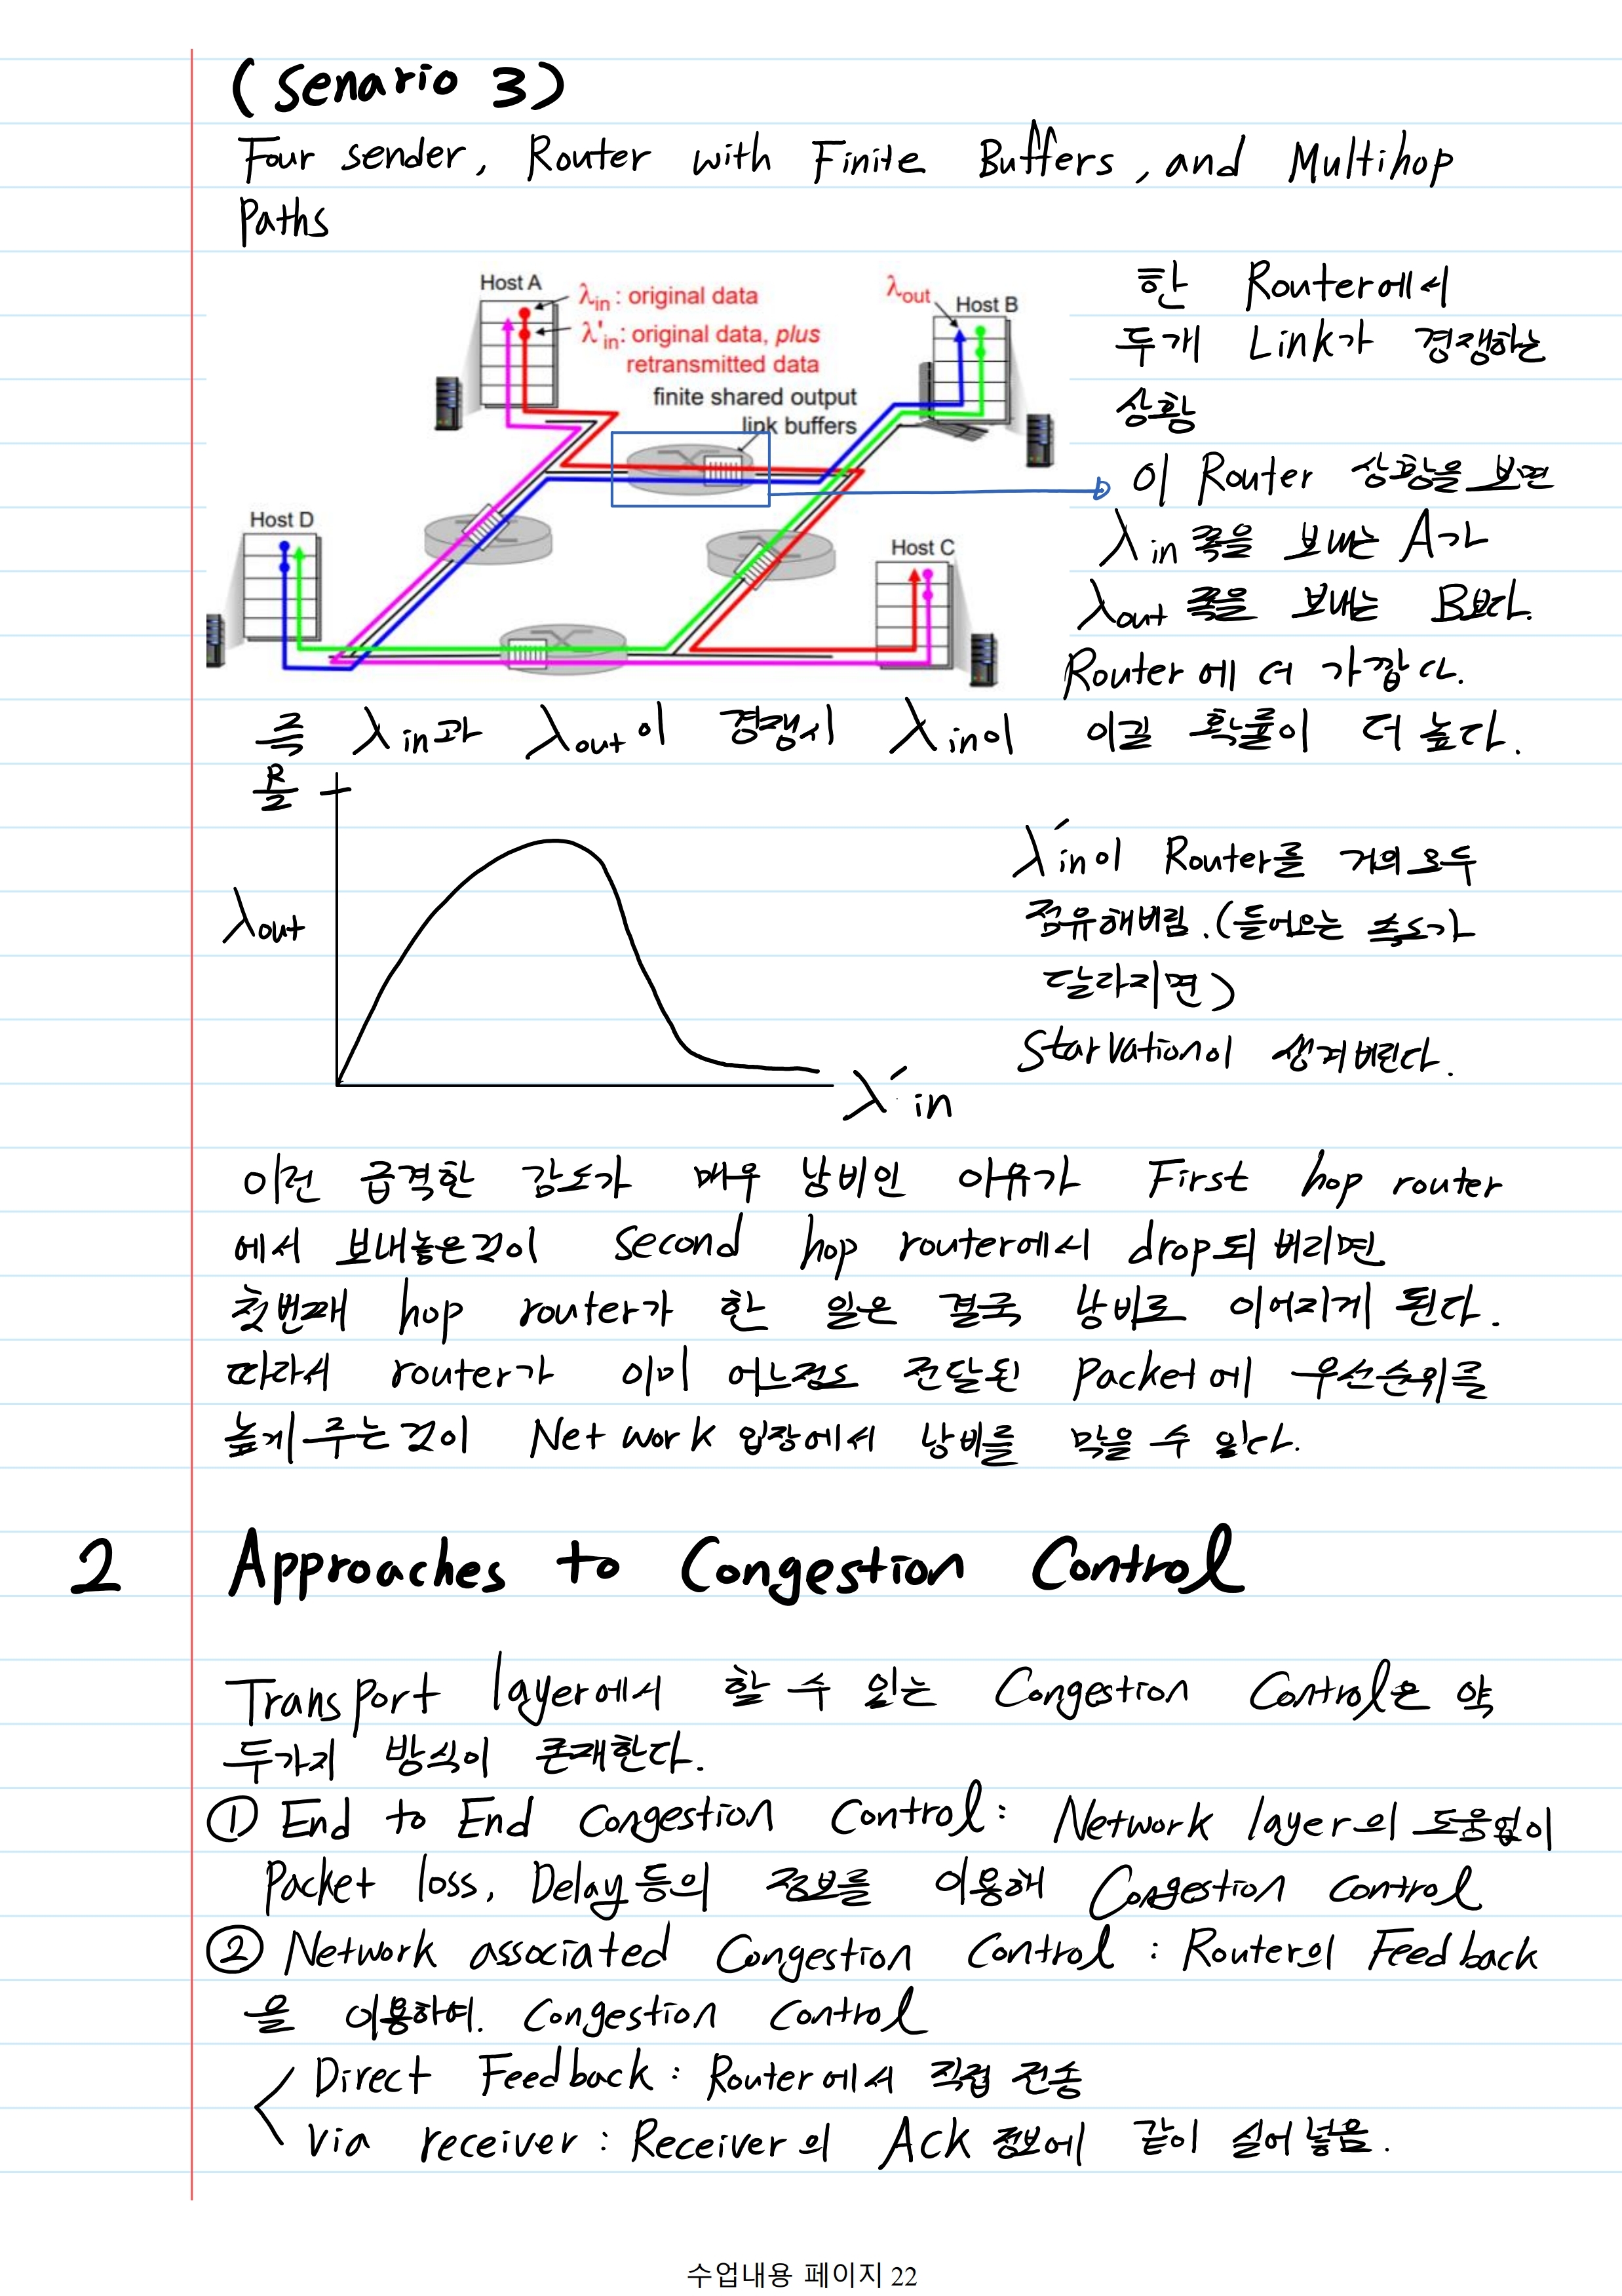 (Senario 3)
Four sender, Router with Finite Buffers, and Multihop
Paths
Host A
λin : original data
λ'in: original data, plus
retransmitted data
finite shared output
link buffers
λout
Host B
Host D
Host C
한 Router에서
두개 Link가 경쟁하는
상황
이 Router 상황을 보면
λin 쪽을 보내는 A가
λout 쪽을 보내는 B보다.
Router에 더 가깝다.
즉 λin과 λout이 경쟁시 λin이 이길 확률이 더 높다.
R/2
λout
λ'in
λ'in이 Router를 거의 모두
점유해버림.(들어오는 속도가
달라지면)
Starvation이 생겨버린다.
이런 급격한 감도가 매우 낭비인 아유가 First hop router
에서 보내놓은것이 Second hop router에서 drop되버리면
첫번째 hop router가 한 일은 결국 낭비로 이어지게 된다.
따라서 router가 이미 어느정도 전달된 Packet에 우선순위를
높게 주는것이 Network 입장에서 낭비를 막을 수 있다.
2 Approaches to Congestion Control
Transport layer에서 할 수 있는 Congestion Control은 약
두가지 방식이 존재한다.
① End to End Congestion Control: Network layer의 도움없이
Packet loss, Delay등의 정보를 이용해 Congestion control
② Network associated Congestion Control : Router의 Feedback
을 이용하여. Congestion Control
Direct Feedback : Router에서 직접 전송
Via receiver : Receiver의 Ack 정보에 같이 실어 넣음.
수업내용 페이지 22